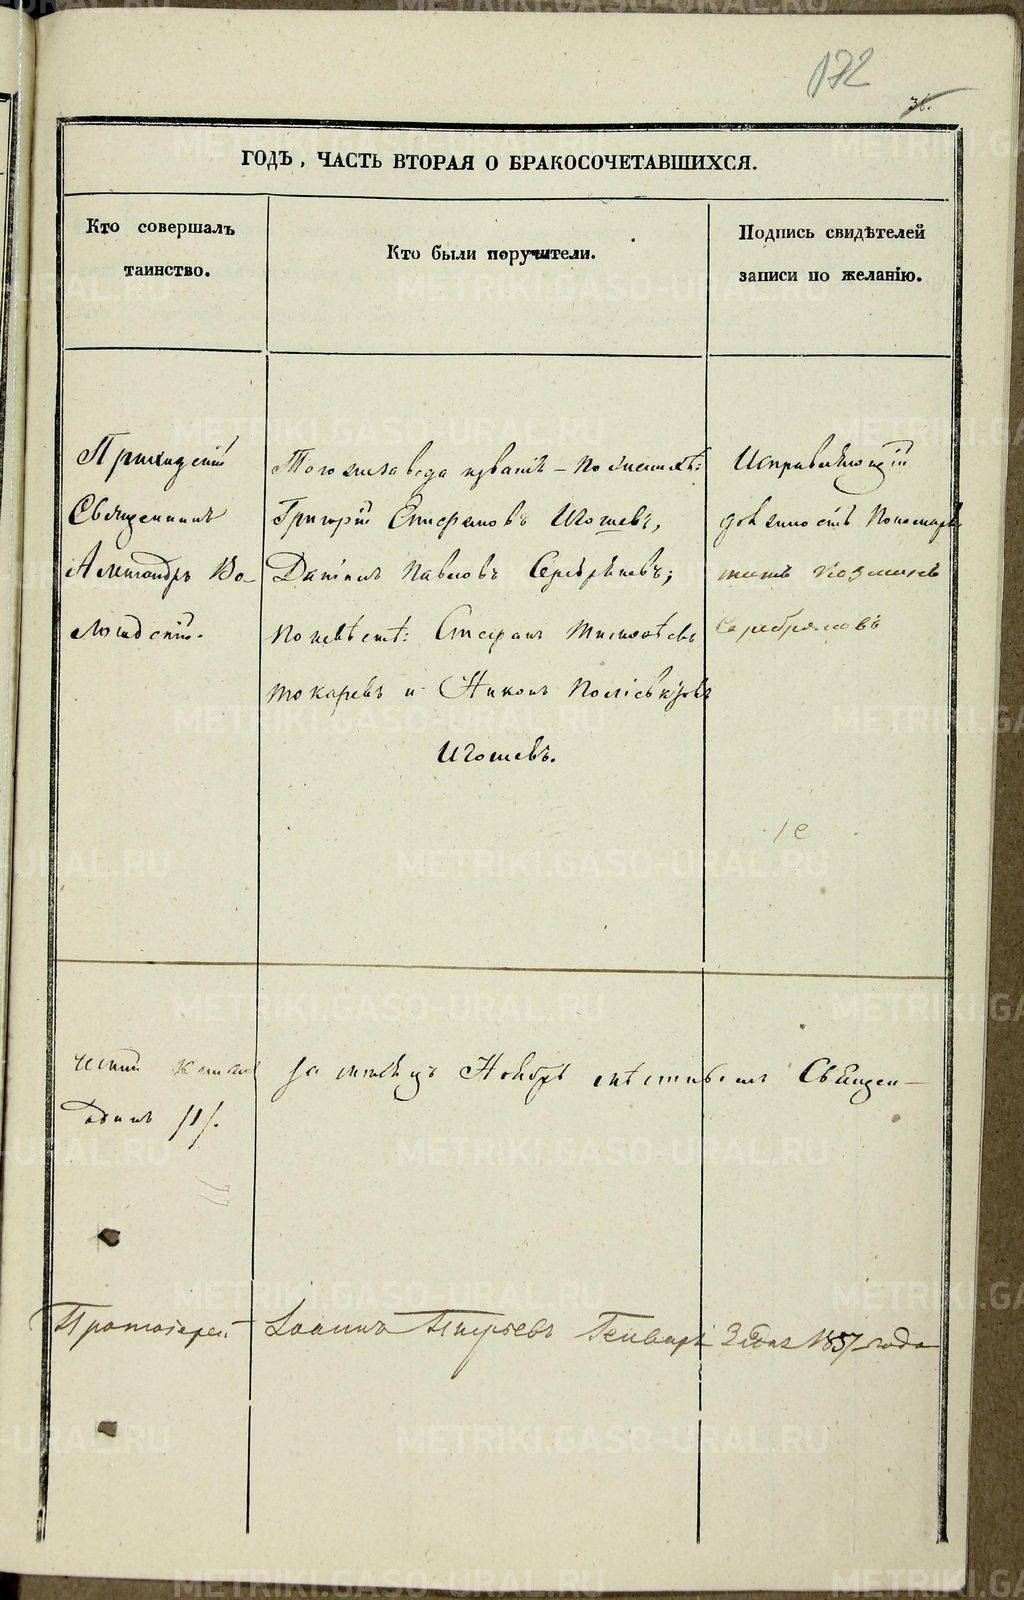 172
36.
ГОДѢ, ЧАСТЬ ВТОРАЯ О БРАКОСОЧЕТАВШИХСЯ.
Кто совершалъ
таинство.
Кто были поручители.
Подпись свидѣтелей
записи по желанію.
Приходскій
Священникъ
Александръ Во-
логодскій.
Того же завода званія – по женихѣ:
Григорій Стефановъ Игошевъ,
Даніилъ Павловъ Серебряковъ;
по невѣстѣ: Стефанъ Тимоѳѣевъ
Токаревъ и Никонъ Поліевктовъ
Игошевъ.
Исправляющій
должность Пономаря
Козминъ
Серебряковъ
за мѣсяцъ Ноябрь Священ-
одинъ /1/.
Протоіерей Іоаннъ Генваря 2 дня 1857 года
METRIKI.GASO-URAL.RU